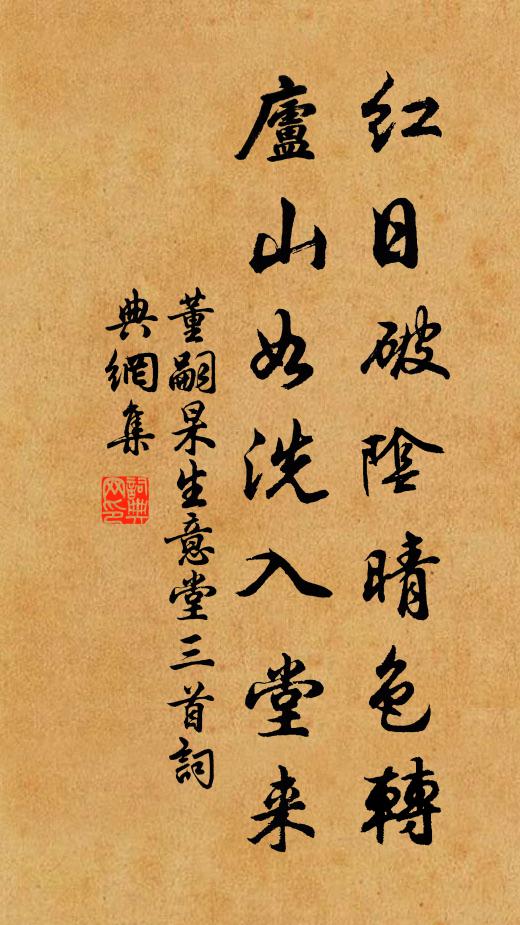 红日破陰晴色轉
廬山如洗入堂来
董嗣杲生意堂三首詞
典網集
詞典網印